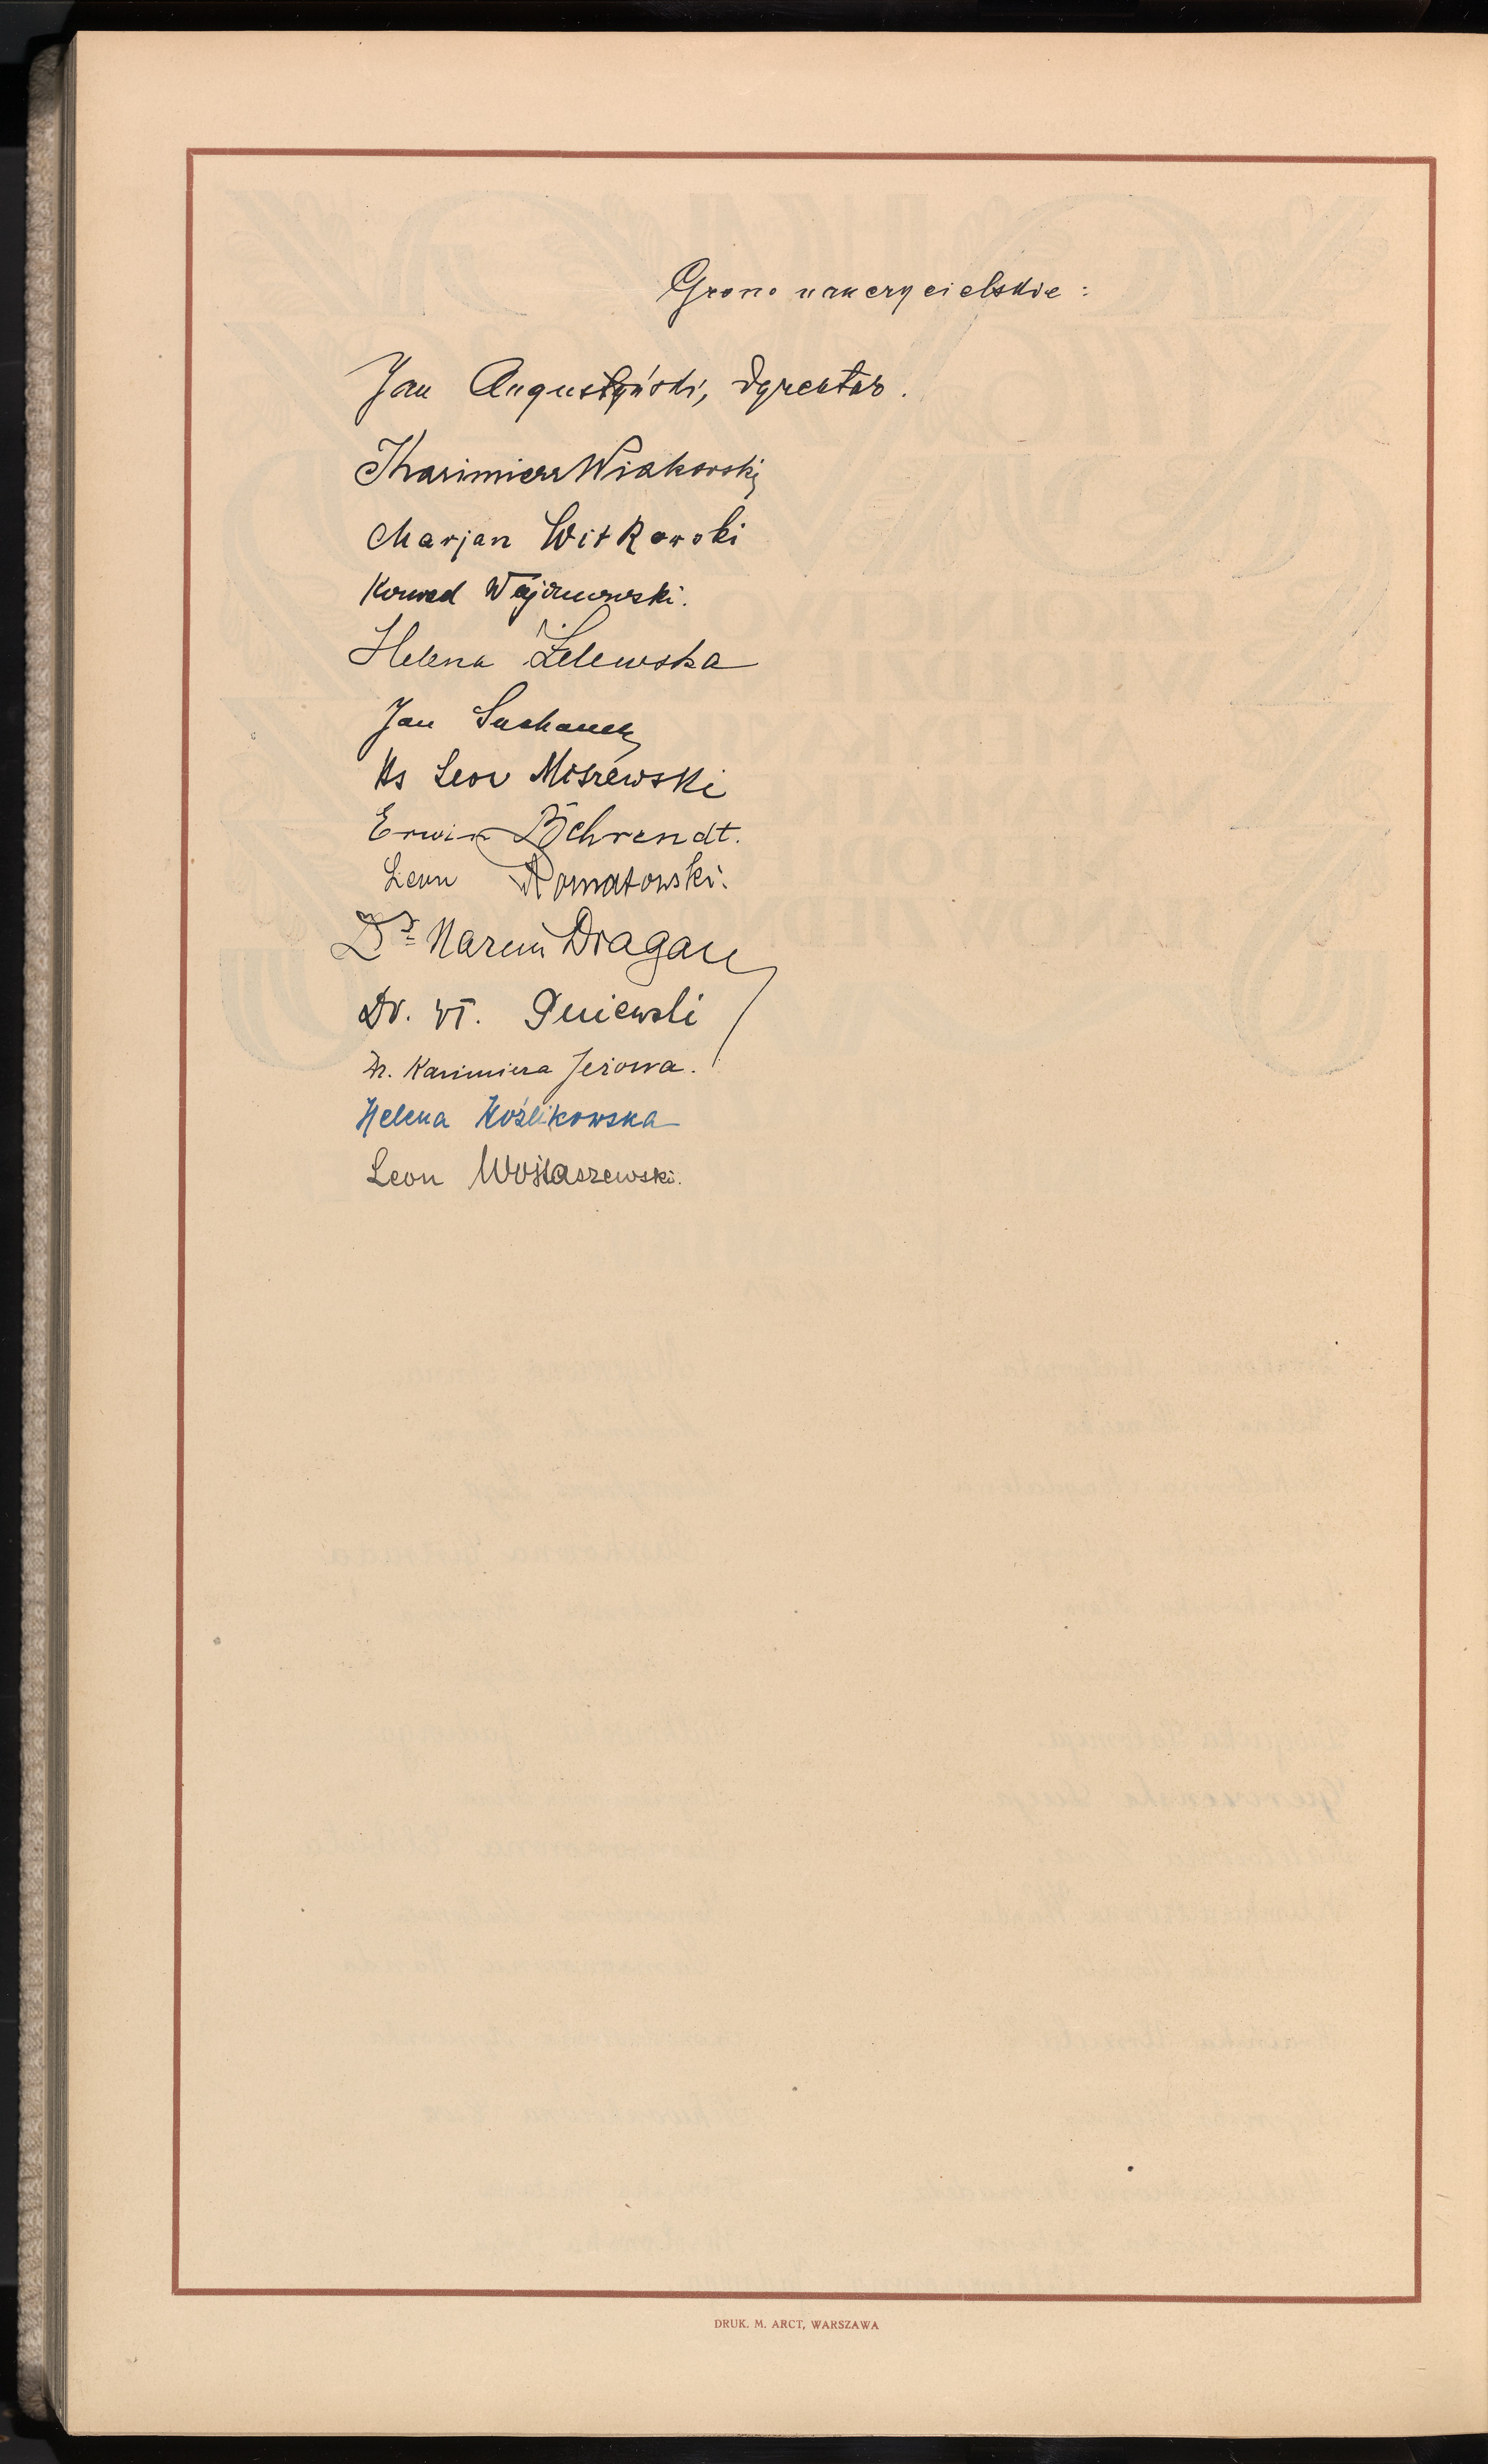 Grono nauczycielskie:
Jan Augustyński, dyrektor.
Kazimierz Wiakowski
Marjan Witkowski
Konrad
Helena Żelewska
Jan Suchanek
Ks Leon Miszewski
Erwin Behrendt.
Leon Romatowski.
Dr Marcin Dragan
Dr. Wł. Pniewski
Dr. Kazimiera Jeżowa.
Helena Koźlikowska
Leon Wojtaszewski.
DRUK. M. ARCT, WARSZAWA